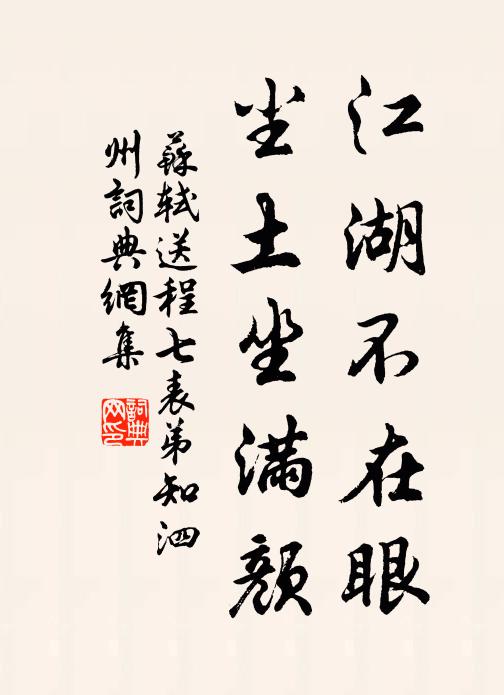 江湖不在眼
尘土坐满颜
蘇軾送程七表弟知泗
州詞典網集
詞典
网印